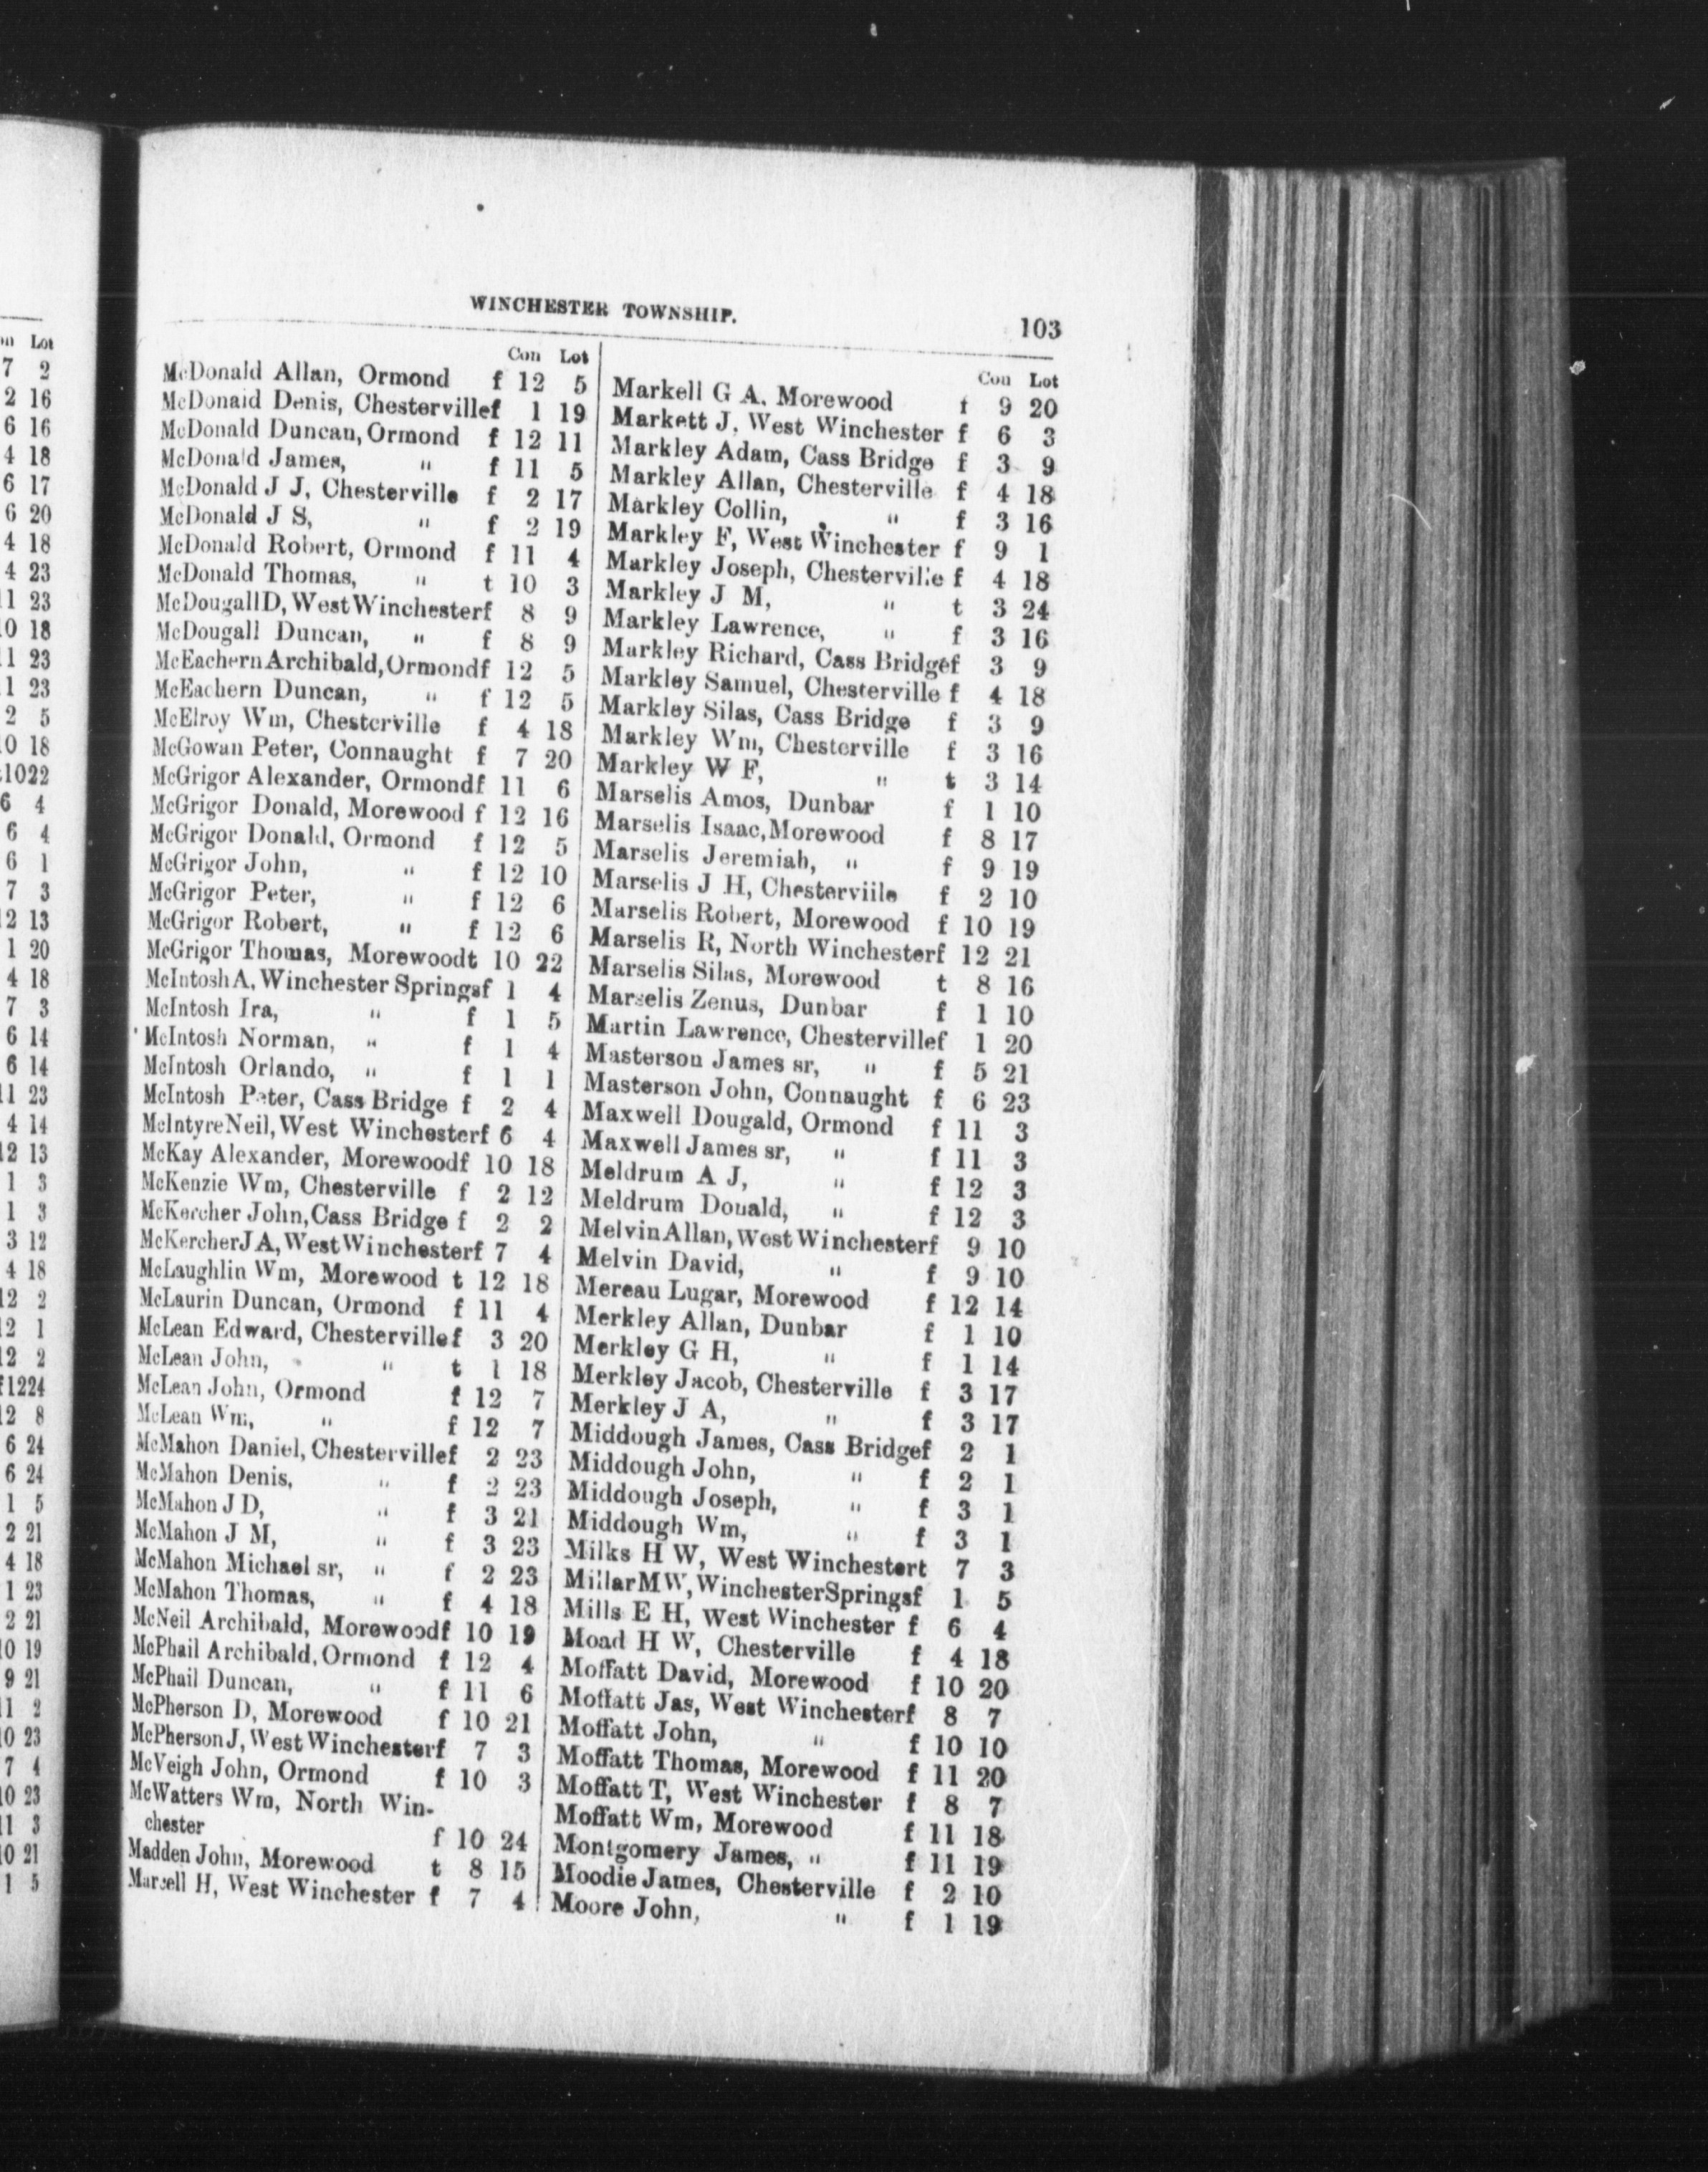 on Lot
7 2
2 16
6 16
4 18
6 17
6 20
4 18
4 23
11 23
10 18
11 23
11 23
2 5
10 18
t1022
6 4
6 4
6 1
7 3
12 13
1 20
4 18
7 3
6 14
6 14
11 23
4 14
12 13
1 3
1 3
3 12
4 18
12 2
12 1
12 2
f1224
12 8
6 24
6 24
1 5
2 21
4 18
1 23
2 21
10 19
9 21
11 2
10 23
7 4
10 23
11 3
10 21
1 5
WINCHESTER TOWNSHIP.
103
Con Lot
McDonald Allan, Ormond f 12 5
McDonald Denis, Chestervillef 1 19
McDonald Duncan, Ormond f 12 11
McDonald James, " f 11 5
McDonald J J, Chesterville f 2 17
McDonald J S, " f 2 19
McDonald Robert, Ormond f 11 4
McDonald Thomas, " t 10 3
McDougall D, West Winchesterf 8 9
McDougall Duncan, " f 8 9
McEachern Archibald, Ormondf 12 5
McEachern Duncan, " f 12 5
McElroy Wm, Chesterville f 4 18
McGowan Peter, Connaught f 7 20
McGrigor Alexander, Ormondf 11 6
McGrigor Donald, Morewood f 12 16
McGrigor Donald, Ormond f 12 5
McGrigor John, " f 12 10
McGrigor Peter, " f 12 6
McGrigor Robert, " f 12 6
McGrigor Thomas, Morewoodt 10 22
McIntosh A, Winchester Springsf 1 4
McIntosh Ira, " f 1 5
McIntosh Norman, " f 1 4
McIntosh Orlando, " f 1 1
McIntosh Peter, Cass Bridge f 2 4
McIntyre Neil, West Winchesterf 6 4
McKay Alexander, Morewoodf 10 18
McKenzie Wm, Chesterville f 2 12
McKercher John, Cass Bridge f 2 2
McKercher J A, West Winchesterf 7 4
McLaughlin Wm, Morewood t 12 18
McLaurin Duncan, Ormond f 11 4
McLean Edward, Chestervillef 3 20
McLean John, " t 1 18
McLean John, Ormond f 12 7
McLean Wm, " f 12 7
McMahon Daniel, Chestervillef 2 23
McMahon Denis, " f 2 23
McMahon J D, " f 3 21
McMahon J M, " f 3 23
McMahon Michael sr, " f 2 23
McMahon Thomas, " f 4 18
McNeil Archibald, Morewoodf 10 19
McPhail Archibald, Ormond f 12 4
McPhail Duncan, " f 11 6
McPherson D, Morewood f 10 21
McPherson J, West Winchesterf 7 3
McVeigh John, Ormond f 10 3
McWatters Wm, North Win-
chester f 10 24
Madden John, Morewood t 8 15
Marsell H, West Winchester f 7 4
Con Lot
Markell G A, Morewood f 9 20
Markett J, West Winchester f 6 3
Markley Adam, Cass Bridge f 3 9
Markley Allan, Chesterville f 4 18
Markley Collin, " f 3 16
Markley F, West Winchester f 9 1
Markley Joseph, Chesterville f 4 18
Markley J M, " t 3 24
Markley Lawrence, " f 3 16
Markley Richard, Cass Bridgef 3 9
Markley Samuel, Chesterville f 4 18
Markley Silas, Cass Bridge f 3 9
Markley Wm, Chesterville f 3 16
Markley W F, " t 3 14
Marselis Amos, Dunbar f 1 10
Marselis Isaac, Morewood f 8 17
Marselis Jeremiah, " f 9 19
Marselis J H, Chesterviile f 2 10
Marselis Robert, Morewood f 10 19
Marselis R, North Winchesterf 12 21
Marselis Silas, Morewood t 8 16
Marselis Zenus, Dunbar f 1 10
Martin Lawrence, Chestervillef 1 20
Masterson James sr, " f 5 21
Masterson John, Connaught f 6 23
Maxwell Dougald, Ormond f 11 3
Maxwell James sr, " f 11 3
Meldrum A J, " f 12 3
Meldrum Donald, " f 12 3
Melvin Allan, West Winchesterf 9 10
Melvin David, " f 9 10
Mereau Lugar, Morewood f 12 14
Merkley Allan, Dunbar f 1 10
Merkley G H, " f 1 14
Merkley Jacob, Chesterville f 3 17
Merkley J A, " f 3 17
Middough James, Cass Bridgef 2 1
Middough John, " f 2 1
Middough Joseph, " f 3 1
Middough Wm, " f 3 1
Milks H W, West Winchestert 7 3
Millar M W, Winchester Springsf 1 5
Mills E H, West Winchester f 6 4
Moad H W, Chesterville f 4 18
Moffatt David, Morewood f 10 20
Moffatt Jas, West Winchesterf 8 7
Moffatt John, " f 10 10
Moffatt Thomas, Morewood f 11 20
Moffatt T, West Winchester f 8 7
Moffatt Wm, Morewood f 11 18
Montgomery James, " f 11 19
Moodie James, Chesterville f 2 10
Moore John, " f 1 19